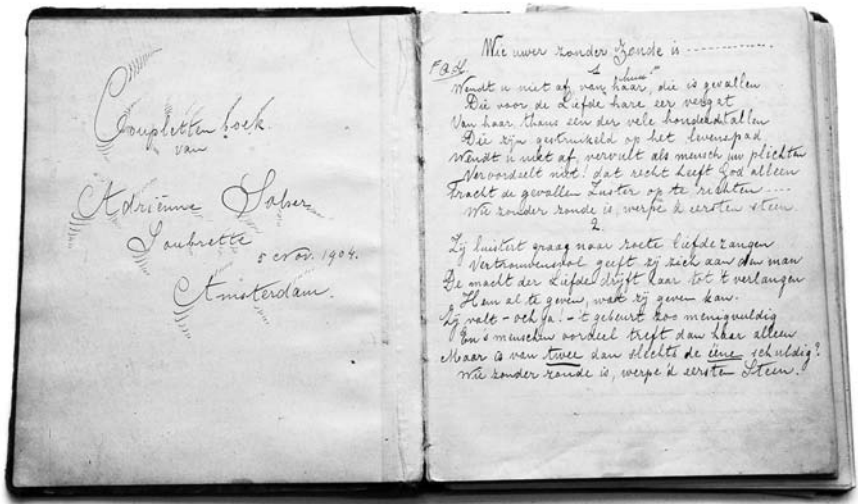 Coupletten boek
van
Adriënne Solser
Soubrette
5 Nov. 1904.
Amsterdam.
Wie uwer zonder Zonde is ..............
1
Wendt u niet af van haar, die is gevallen
Die voor de Liefde hare eer vergat
Van haar, thans een der vele honderdtallen
Die zijn gestruikeld op het levenspad
Wendt u niet af, vervult als mensch uw plichten
Veroordeelt niet! dat recht heeft God alleen
Tracht de gevallen Zuster op te richten ....
Wie zonder zonde is, werpe d'eersten steen.
2.
Zij luistert graag naar zoete liefdezangen
Vertrouwensvol geeft zij zich aan den man
De macht der Liefde drijft haar tot 't verlangen
Hem al te geven, wat zij geven kan.
Zij valt - och ja! - 't gebeurt zoo menigvuldig
En 's menschen oordeel treft dan haar alleen
Maar is van twee dan slechts de ééne schuldig?
Wie zonder zonde is, werpe d'eersten Steen!